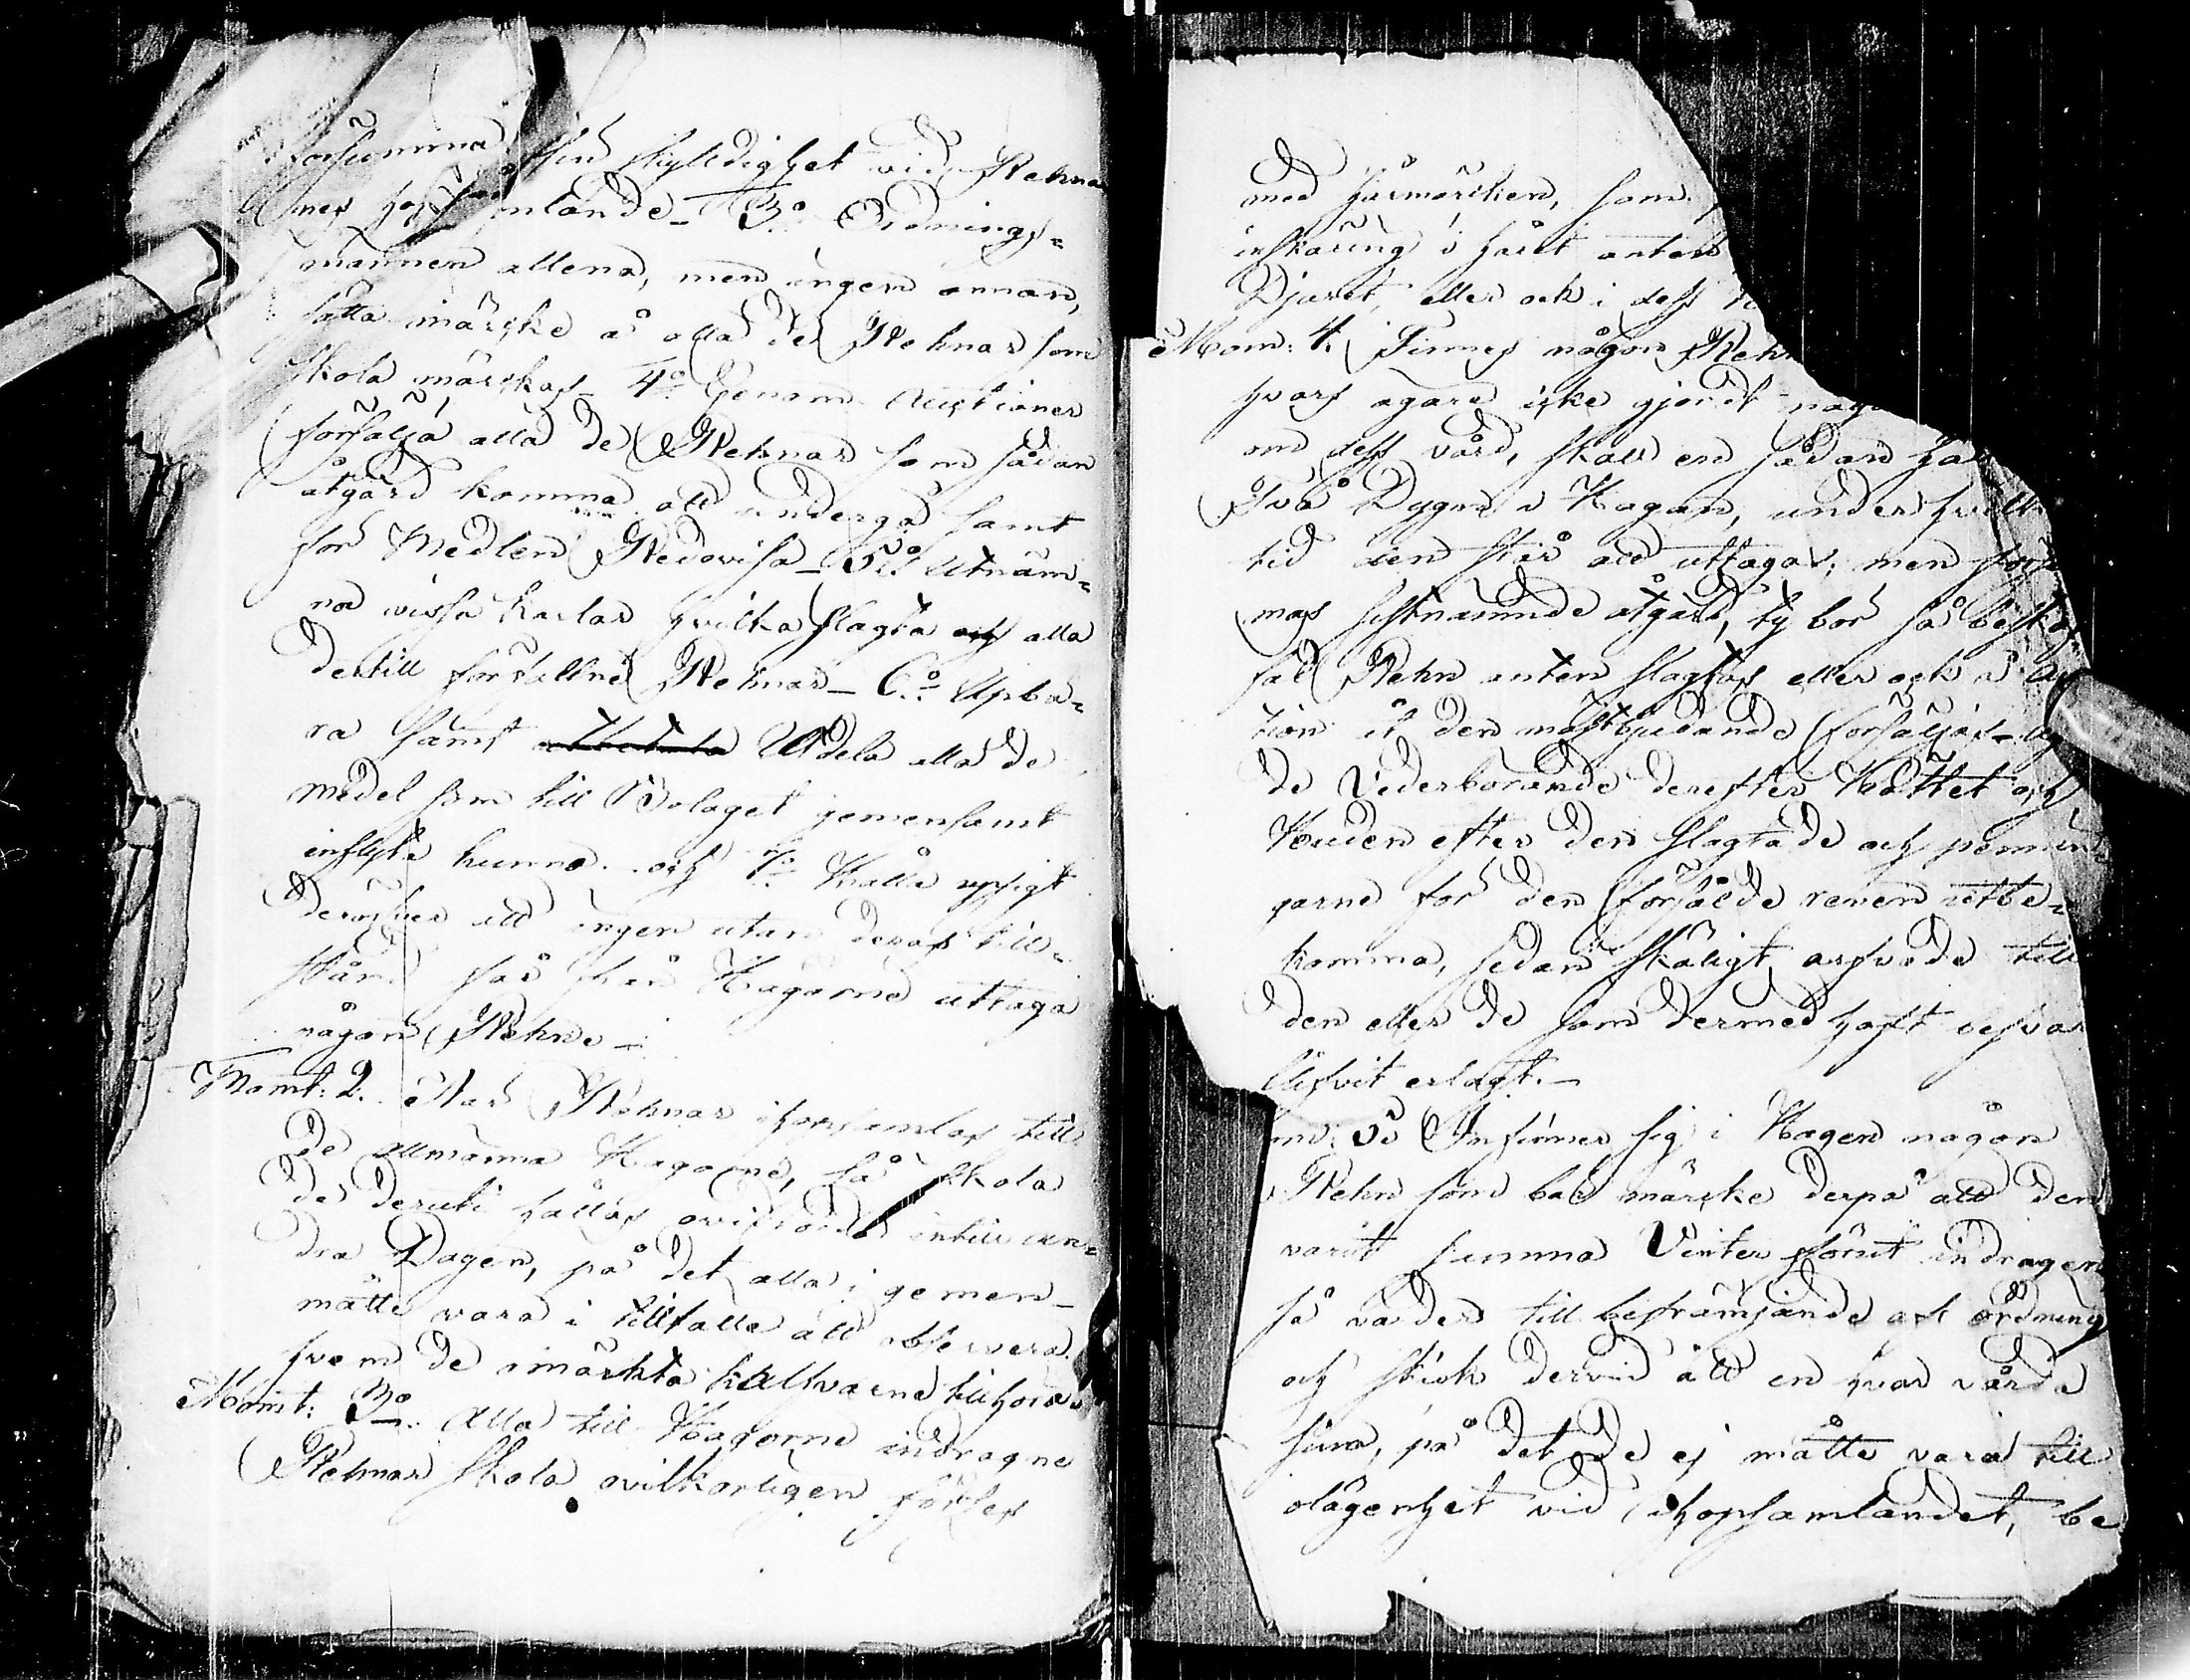 försumma sin skylldighet vid Rehnar
nes hopsamlande_ 3:o Ordnings=
männen allena, men ingen annan,
sätta märcke å alla de Rehnar som
skola märckas_ 4:o Genom Auctioner
försälja alla de Rehnar som sådan
åtgärd komma att undergå samt
för Medlen Redovisa_ 5:o Utnäm=
na vissa karlar hvilka slagta alla
dertill förfallne Rehnar_ 6:o Upbä=
ra samt Utdela alla de
medel som till Bolaget gemensamt
inflyta kunna. och 7:o Hålla upsigt
deröfver att ingen utan deras till=
stånd får från Hagarne uttaga
någon Rehn_
Momt: 2. När Rehnar ihopsamlas till
de allmänna Hagarne, så skola
de deruti hållas orifvade intill an=
dra Dagen, på det alla i gemen_
måtte vara i tillfälle att observera
hvem de märkta kalfvarne tillhöra.
Momt: 3o. Alla till Hagarne indragne
Rehnar skola ovilkorligen förses
med hårmärken, som
inskäring i håret anten
Djuret, eller ock i dess
Mom: 4. Finnes någon Rehn
hvars ägare icke gjordt någo
om dess vård, skall en sådan
Två Dygn i Hagan, under hvilk
tid den står att uttagas; men försu
mas sistnämnde åtgärd, ty bör så beskaf
fad Rehn anten slagtas eller ock å Auc
tion åt den mästbjudande försäljas_
de Vederbörande derefter Köttet och
Huden efter den slagtade och pennin=
garne för den försålde renen =
komma, sedan skäligt arfvode till
den eller de som dermed haft besvär
blifvit erlagt._
m: 5o Infinner sig i Hagen någon
Rehn som bär märcke derpå att den
varit samma Vinter förut indragen
så vårdes till befrämjande af ordning
och skick dervid att en hvar vårda
sina, på det de ej måtte vara till
olägenhet vid ihopsamlandet, be